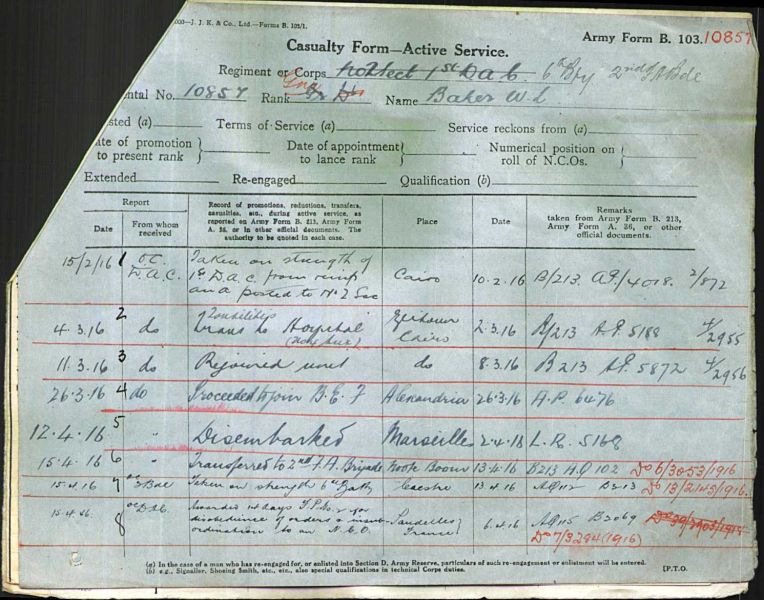 000—J. J. K. & Co., Ltd.—Forms B. 103/1.
Army Form B. 103. 10857
Casualty Form—Active Service.
Regiment or Corps 1st D a C 6th Bty 2nd F A Bde
ental No. 10857 Rank Gnr Name Baker W. L
sted (a) Terms of Service (a) Service reckons from (a)
ate of promotion to present rank } Date of appointment to lance rank } Numerical position on roll of N.C.Os. }
Extended Re-engaged Qualification (b)
Report
Date
From whom received
Record of promotions, reductions, transfers,
casualties, etc., during active service, as
reported on Army Form B. 213, Army Form
A. 36, or in other official documents. The
authority to be quoted in each case.
Place
Date
Remarks
taken from Army Form B. 213,
Army Form A. 36, or other
official documents.
15/2/16 1 O.C. D.A.C. Taken on strength of
1st D.A.C. from
posted to No 2 Sec Cairo 10.2.16 B/213 A.P/4018. 2/872
4.3.16 2 do Tonsilitis
trans to Hospital Zeitoun Cairo 2.3.16 B/213 A.P. 5188 4/2955
11.3.16 3 do Rejoined unit do 8.3.16 B213 A.P. 5872 4/2956
26.3.16 4 do Proceeded to join B.E.F Alexandria 26.3.16 A.P. 6476
12.4.16 5 " Disembarked Marseilles 2.4.16 L.R. 5168
15.4.16 6 " Transferred to 2nd F.A. Brigade 13.4.16 B213 A.Q 102 Do 6/3053/1916
15.4.16 7 Bde Taken on strength 6th Batty Caestre 13.4.16 AQ112 B213 Do 13/2143/1916.
15.4.16 8 OC DAC Awarded 14 days F.P. No 2 for
disobedience of orders & insub-
ordination to an N.C.O. France 6.4.16 AQ115 B2069
Do 7/3294(1916)
(a) In the case of a man who has re-engaged for, or enlisted into Section D, Army Reserve, particulars of such re-engagement or enlistment will be entered.
(b) e.g., Signaller, Shoeing Smith, etc., etc., also special qualifications in technical Corps duties. [P.T.O.